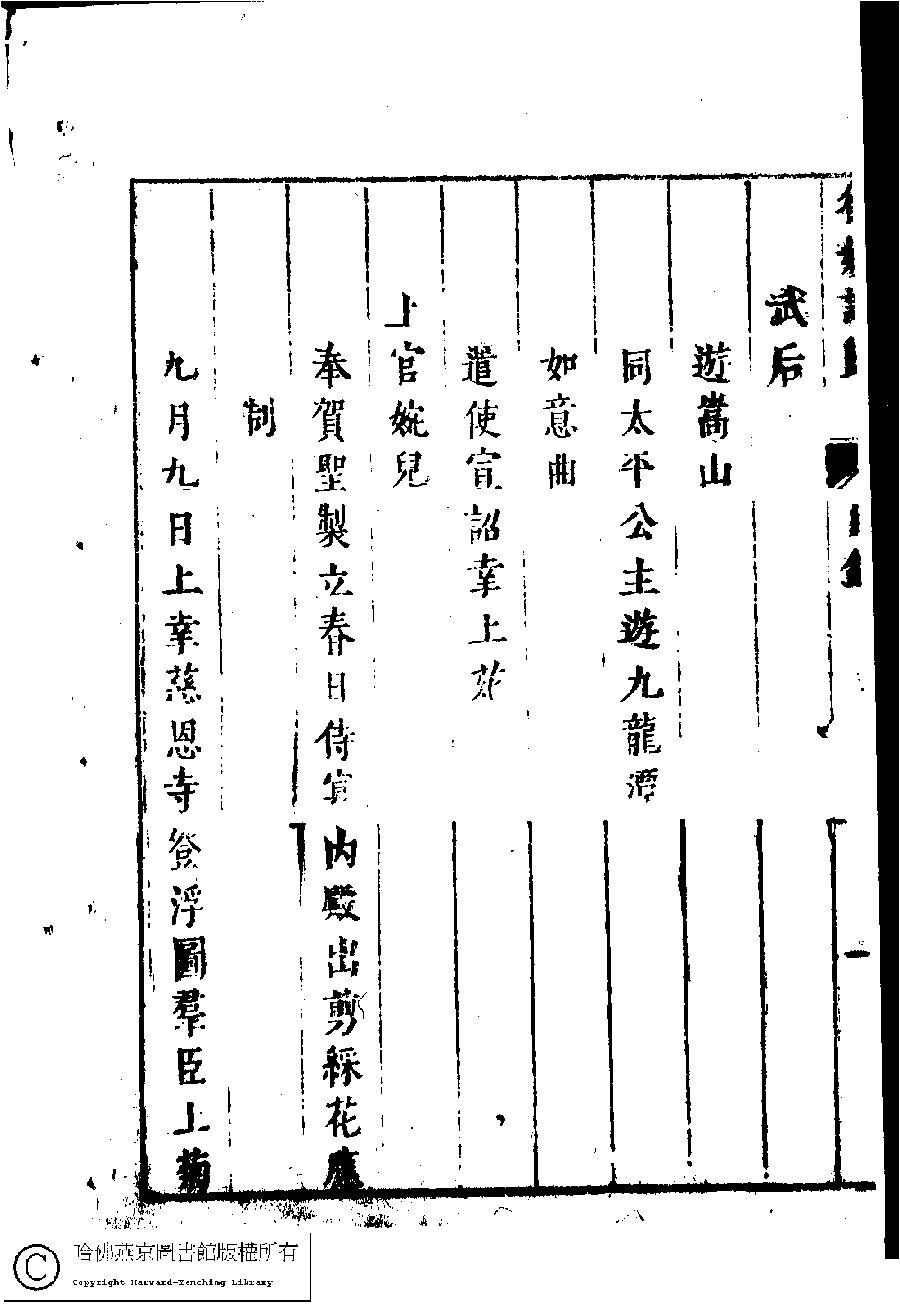 武后
遊嵩山
同太平公主遊九龍潭
如意曲
遣使宣詔幸上苑
上官婉兒
奉賀聖製立春日侍宴內殿出剪綵花應
制
九月九日上幸慈恩寺登浮圖羣臣上菊
哈佛燕京圖書館版權所有
Copyright Harvard-Yenching Library